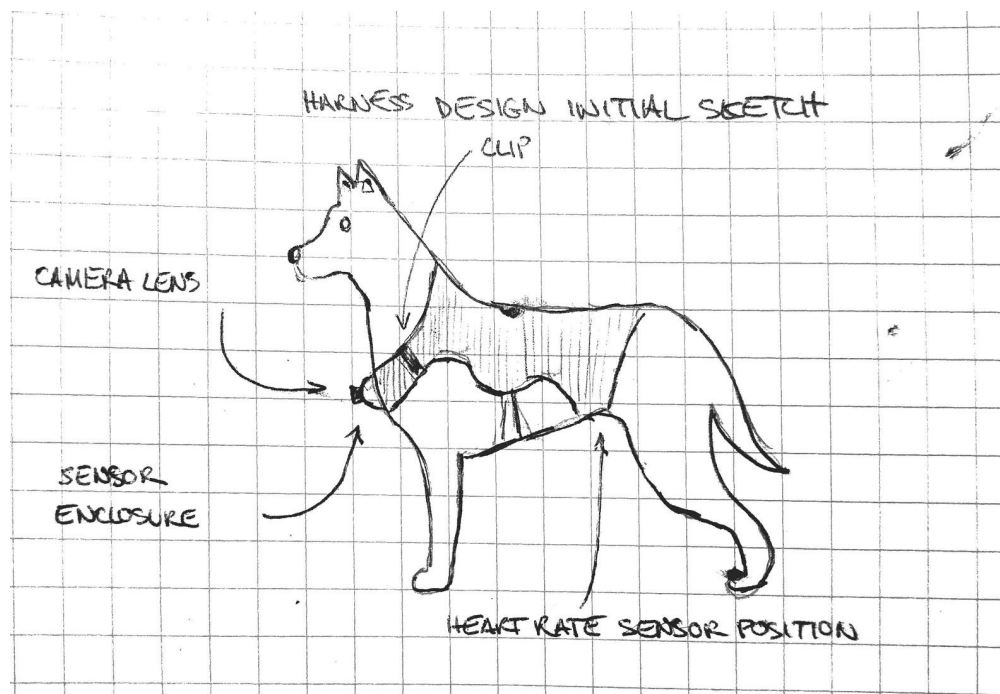 HARNESS DESIGN INITIAL SKETCH
CLIP
CAMERA LENS
SENSOR
ENCLOSURE
HEART RATE SENSOR POSITION